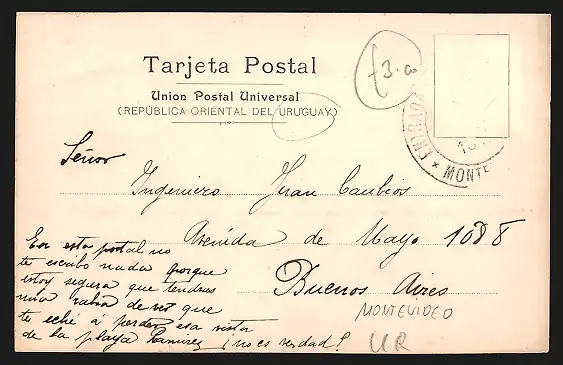 Tarjeta Postal
Union Postal Universal
(REPÚBLICA ORIENTAL DEL URUGUAY)
f3.00
MONTE
Señor
Ingeniero Juan Cambios
Avenida de Mayo 1088
Buenos Aires
En esta postal no
te escribo nada porque
estoy segura que tendras
una de que
te eché á perder esa vista
de la playa Ramirez ¿no es verdad?
MONTEVIDEO
UR